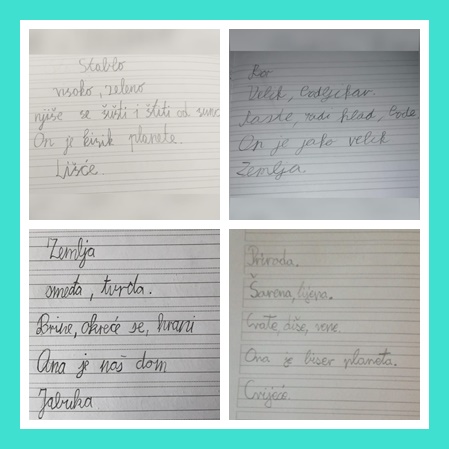 Stablo
visoko, zeleno
njiše se šušti i štiti od sunc
On je kisik planete.
Lišće.
Bor
Velik, bodljikav.
raste, radi hlad, bode
On je jako velik
Zemlja.
Zemlja
smeđa, tvrda.
Brine, okreće se, hrani
Ona je naš dom
Jabuka
Priroda.
Šarena, lijepa.
Cvate, diše, vene.
Ona je biser planeta.
Cvijeće.